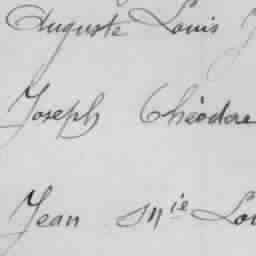 Auguste Louis
Joseph Théodore
Jean Mie